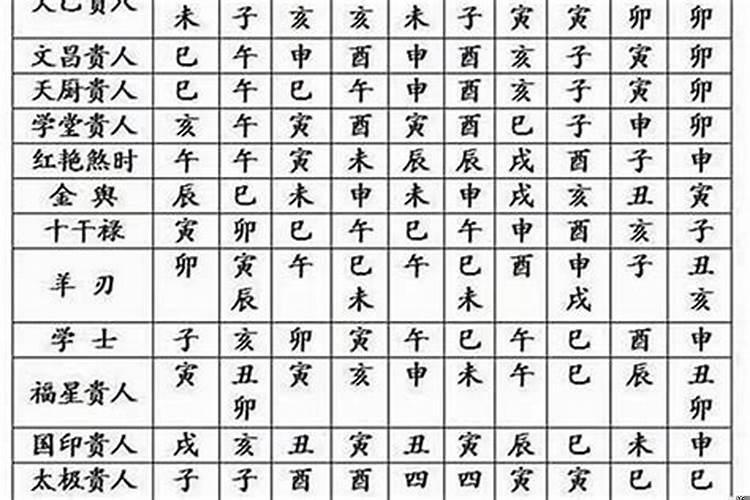 天乙貴人 未 子 亥 亥 未 子 寅 寅 卯 卯
文昌貴人 巳 午 申 酉 申 酉 亥 子 寅 卯
天厨貴人 巳 午 巳 午 申 酉 亥 子 寅 卯
学堂貴人 亥 午 寅 酉 寅 酉 巳 子 申 卯
红艳煞时 午 午 寅 未 辰 辰 戌 酉 子 申
金 舆 辰 巳 未 申 未 申 戌 亥 丑 寅
十干禄 寅 卯 巳 午 巳 午 申 酉 亥 子
羊 刃 卯 寅 午 巳 午 巳 酉 申 子 丑
辰 未 未 戌 亥
学 士 子 亥 卯 寅 午 巳 午 巳 酉 申
福星貴人 寅 丑 寅 亥 申 未 午 巳 辰 丑
卯 卯
国印貴人 戌 亥 丑 寅 丑 寅 辰 巳 未 申
太极貴人 子 子 酉 酉 四 四 寅 寅 巳 巳